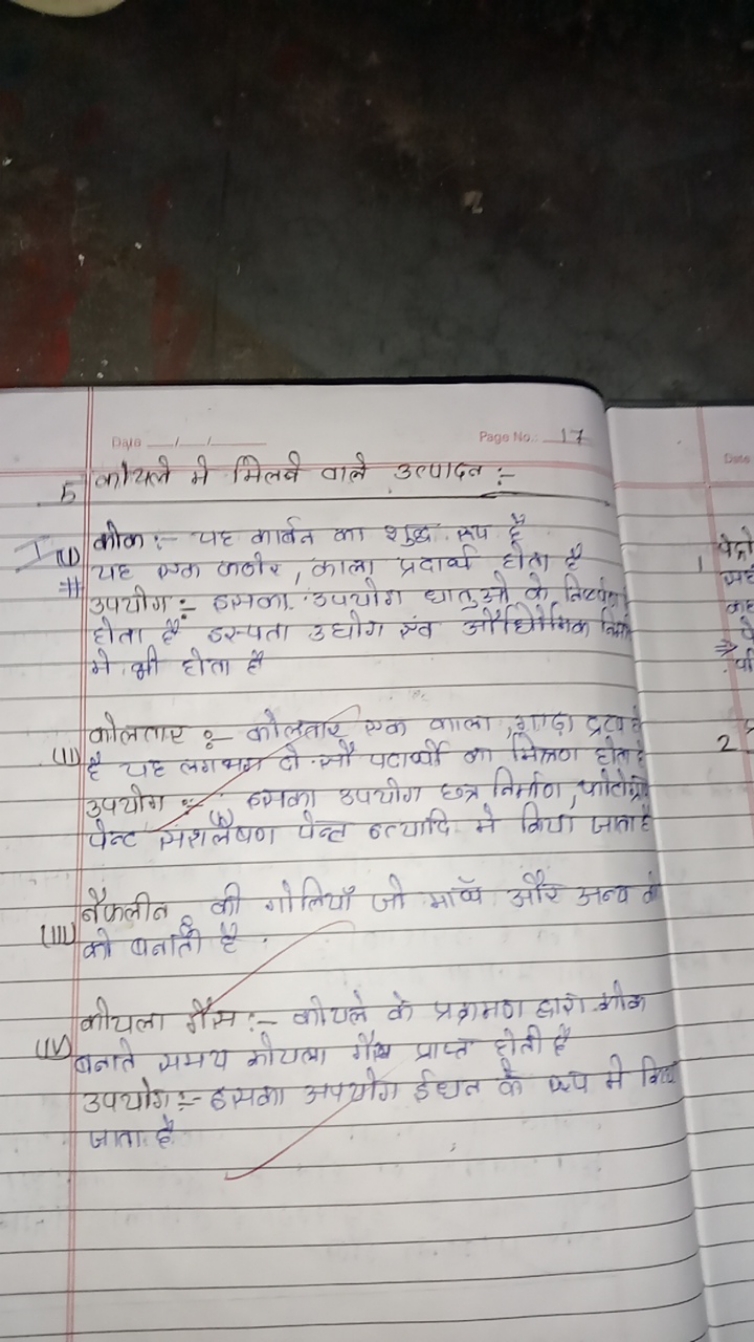 Date __/__/__
Page No.: 17
5 कोयले मे मिलने वाले उत्पादन :-
(I) कोक :- यह कार्बन का शुद्ध रूप है
यह एक कठोर, काला प्रदार्थ होता है
उपयोग :- इसका उपयोग धातुओ के
होता है इस्पता उद्योग एंव
मे भी होता है
(II) कोलतार :- कोलतार एक काला, गाढ़ा द्रव्य
है यह लगभग दो सौ पदार्थो का मिश्रण होता है
उपयोग :- इसका उपयोग छत्र निर्माण,
पेन्ट सशलेषण पेन्ट इत्यादि मे किया जाता है
(III) नैफलीन की गोलियाँ जो और अन्य
को बनाती है
(IV) कोयला गैस :- कोयले के प्रक्रमण द्वारा कोक
बनाते समय कोयला गैस प्राप्त होती है
उपयोग :- इसका अपयोग ईधन के रूप मे
जाता है
Date
1
2